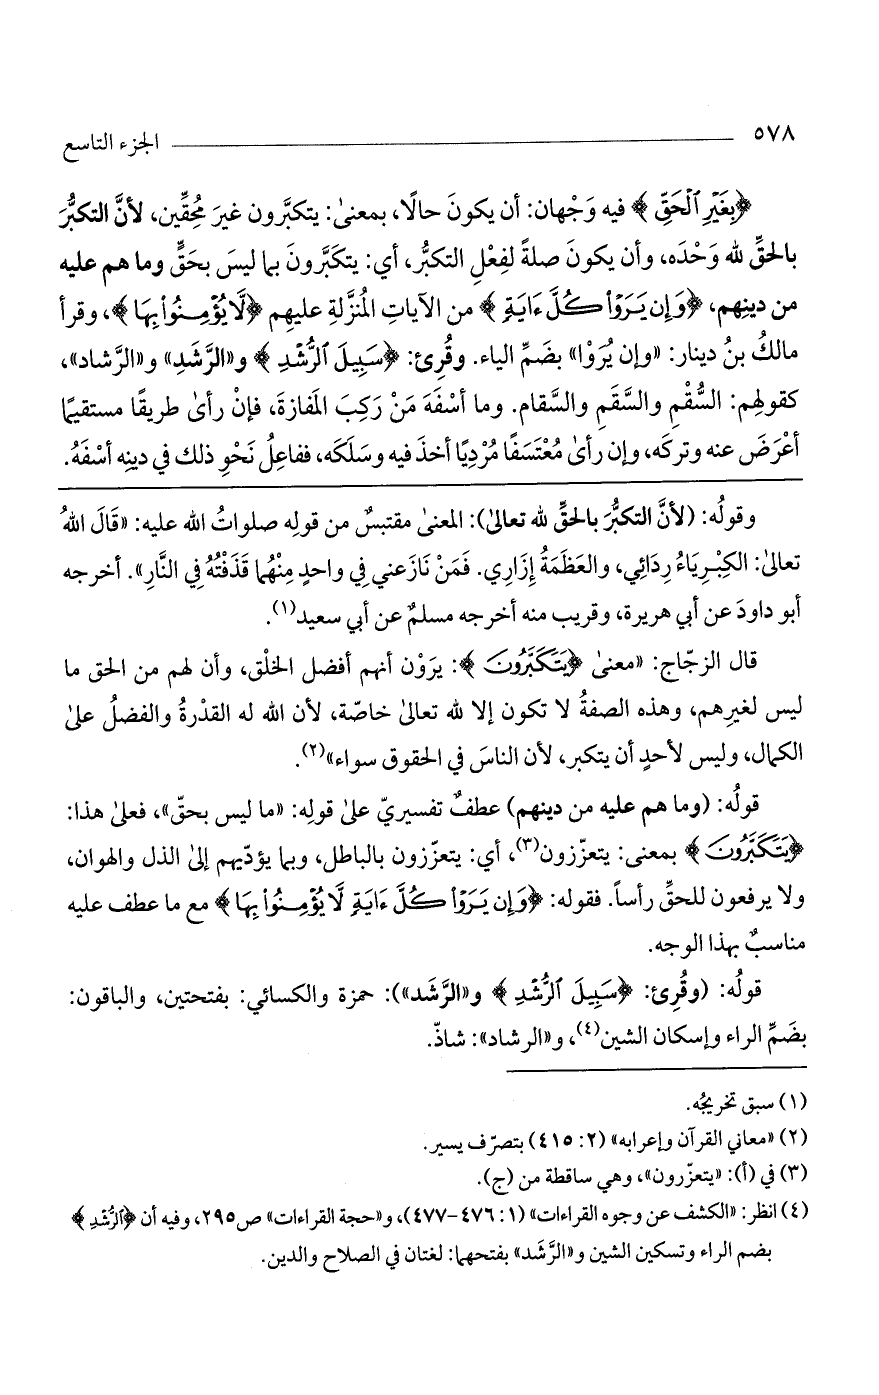 ٥٧٨ الجزء التاسع
﴿بِغَيْرِ ٱلْحَقِّ﴾ فيه وَجْهان: أن يكونَ حالًا، بمعنىٰ: يتكبَّرون غيرَ مُحِقِّين، لأنَّ التكبُّرَ
بالحقِّ لله وَحْدَه، وأن يكونَ صلةً لفِعْلِ التكبُّر، أي: يتكَبَّرونَ بما ليسَ بحَقٍّ وما هم عليه
من دينِهم، ﴿وَإِن يَرَوْا۟ كُلَّ ءَايَةٍ﴾ من الآياتِ المُنزَّلةِ عليهِم ﴿لَّا يُؤْمِنُوا۟ بِهَا﴾، وقرأ
مالكُ بنُ دينار: «وإن يُرَوْا» بضَمِّ الياء. وقُرِئ: ﴿سَبِيلَ ٱلرُّشْدِ﴾ و«الرَّشَدِ» و«الرَّشاد»،
كقولهِم: السُّقْمِ والسَّقَمِ والسَّقام. وما أسْفَهَ مَنْ رَكِبَ المَفازةَ، فإنْ رأىٰ طريقًا مستقيمًا
أعْرَضَ عنه وتركَه، وإن رأىٰ مُعْتَسَفًا مُرْدِيًا أخذَ فيه وسَلَكَه، ففاعِلُ نَحْوِ ذلك في دينِه أسْفَهُ.
وقولُه: (لأنَّ التكبُّرَ بالحقِّ لله تعالىٰ): المعنىٰ مقتبسٌ من قولِه صلواتُ الله عليه: «قَالَ اللهُ
تعالىٰ: الكِبْرِيَاءُ رِدَائِي، والعَظَمَةُ إزَارِي. فَمَنْ نَازَعني في واحدٍ مِنْهُما قَذَفْتُهُ فِي النَّارِ». أخرجه
أبو داودَ عن أبي هريرة، وقريب منه أخرجه مسلمٌ عن أبي سعيد(١).
قال الزجّاج: «معنىٰ ﴿يَتَكَبَّرُونَ﴾: يرَوْن أنهم أفضل الخلْق، وأن لهم من الحق ما
ليس لغيرِهم، وهذه الصفةُ لا تكون إلا لله تعالىٰ خاصّة، لأن الله له القدْرةُ والفضلُ علىٰ
الكمال، وليس لأحدٍ أن يتكبر، لأن الناسَ في الحقوق سواء»(٢).
قولُه: (وما هم عليه من دينهم) عطفٌ تفسيريّ علىٰ قولِه: «ما ليس بحقّ»، فعلىٰ هذا:
﴿يَتَكَبَّرُونَ﴾ بمعنى: يتعزّزون(٣)، أي: يتعزّزون بالباطل، وبما يؤدّيهم إلىٰ الذل والهوان،
ولا يرفعون للحقِّ رأساً. فقوله: ﴿وَإِن يَرَوْا۟ كُلَّ ءَايَةٍ لَّا يُؤْمِنُوا۟ بِهَا﴾ مع ما عطف عليه
مناسبٌ بهذا الوجه.
قولُه: (وقُرِئ: ﴿سَبِيلَ ٱلرُّشْدِ﴾ و«الرَّشَد»): حمزة والكسائي: بفتحتين، والباقون:
بضَمِّ الراء وإسكان الشين(٤)، و«الرشاد»: شاذّ.
(١) سبق تخريجُه.
(٢) «معاني القرآن وإعرابه» (٢: ٤١٥) بتصرّف يسير.
(٣) في (أ): «يتعزّرون»، وهي ساقطة من (ج).
(٤) انظر: «الكشف عن وجوه القراءات» (١: ٤٧٦-٤٧٧)، و«حجة القراءات» ص٢٩٥، وفيه أن ﴿ٱلرُّشْدِ﴾
بضم الراء وتسكين الشين و«الرَّشَد» بفتحهما: لغتان في الصلاح والدين.